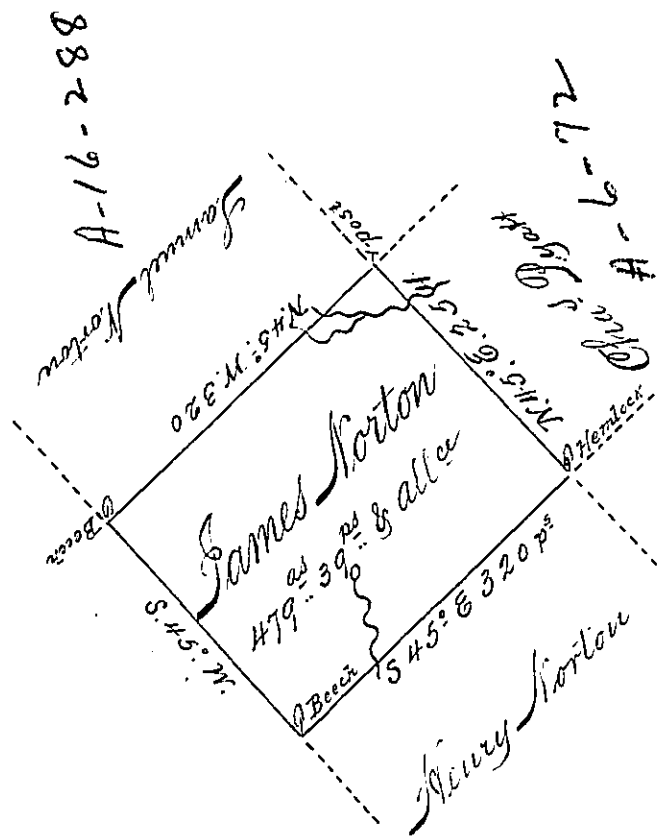 A-19-288
A-9-72
Samuel Norton
post
N.45.°W.320
N.45.°E.251
Hemlock
Beech
James Norton
479 as 39 ps & all ce
S.45.°W.
Beech
S 45° E 320 ps
Henry Norton